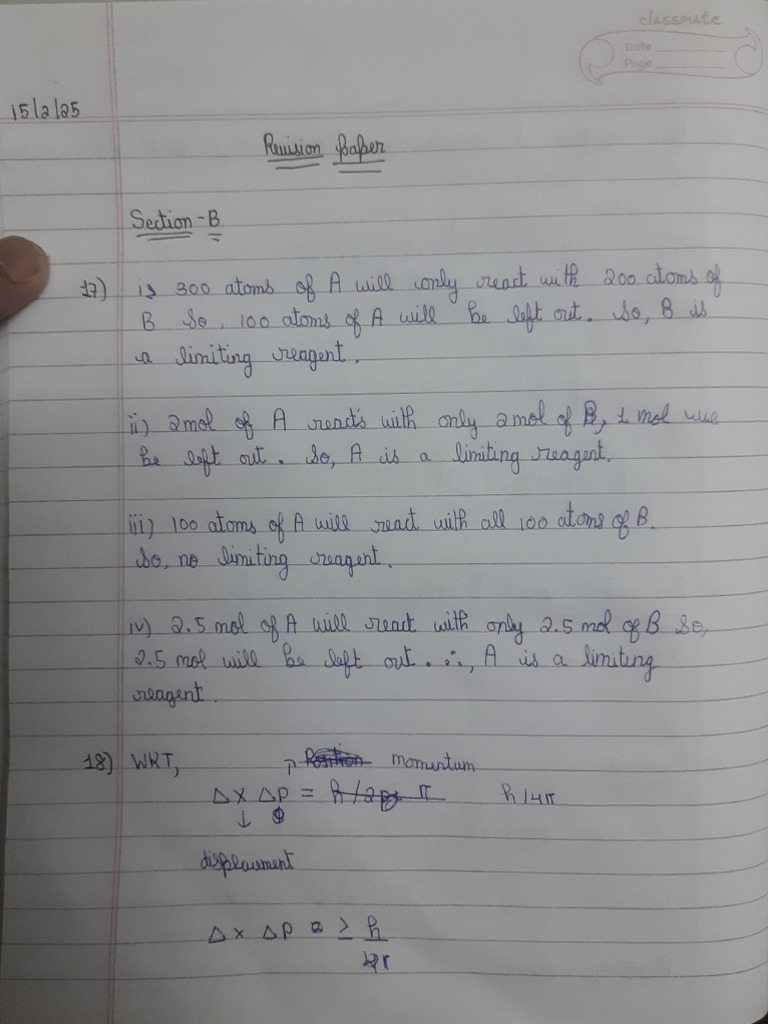 classmate
Date
Page
15/2/25
Revision paper
Section-B
17) i) 300 atoms of A will only react with 200 atoms of
B So, 100 atoms of A will be left out. So, B is
a limiting reagent.
ii) 2mol of A reacts with only 2mol of B, 1 mol
be left out. So, A is a limiting reagent.
iii) 100 atoms of A will react with all 100 atoms of B.
So, no limiting reagent.
iv) 2.5 mol of A will react with only 2.5 mol of B So,
2.5 mol will be left out. ∴, A is a limiting
reagent.
18) WKT,
momentum
Δx Δp = h/4π
↓
displacement
Δx Δp ≥ h